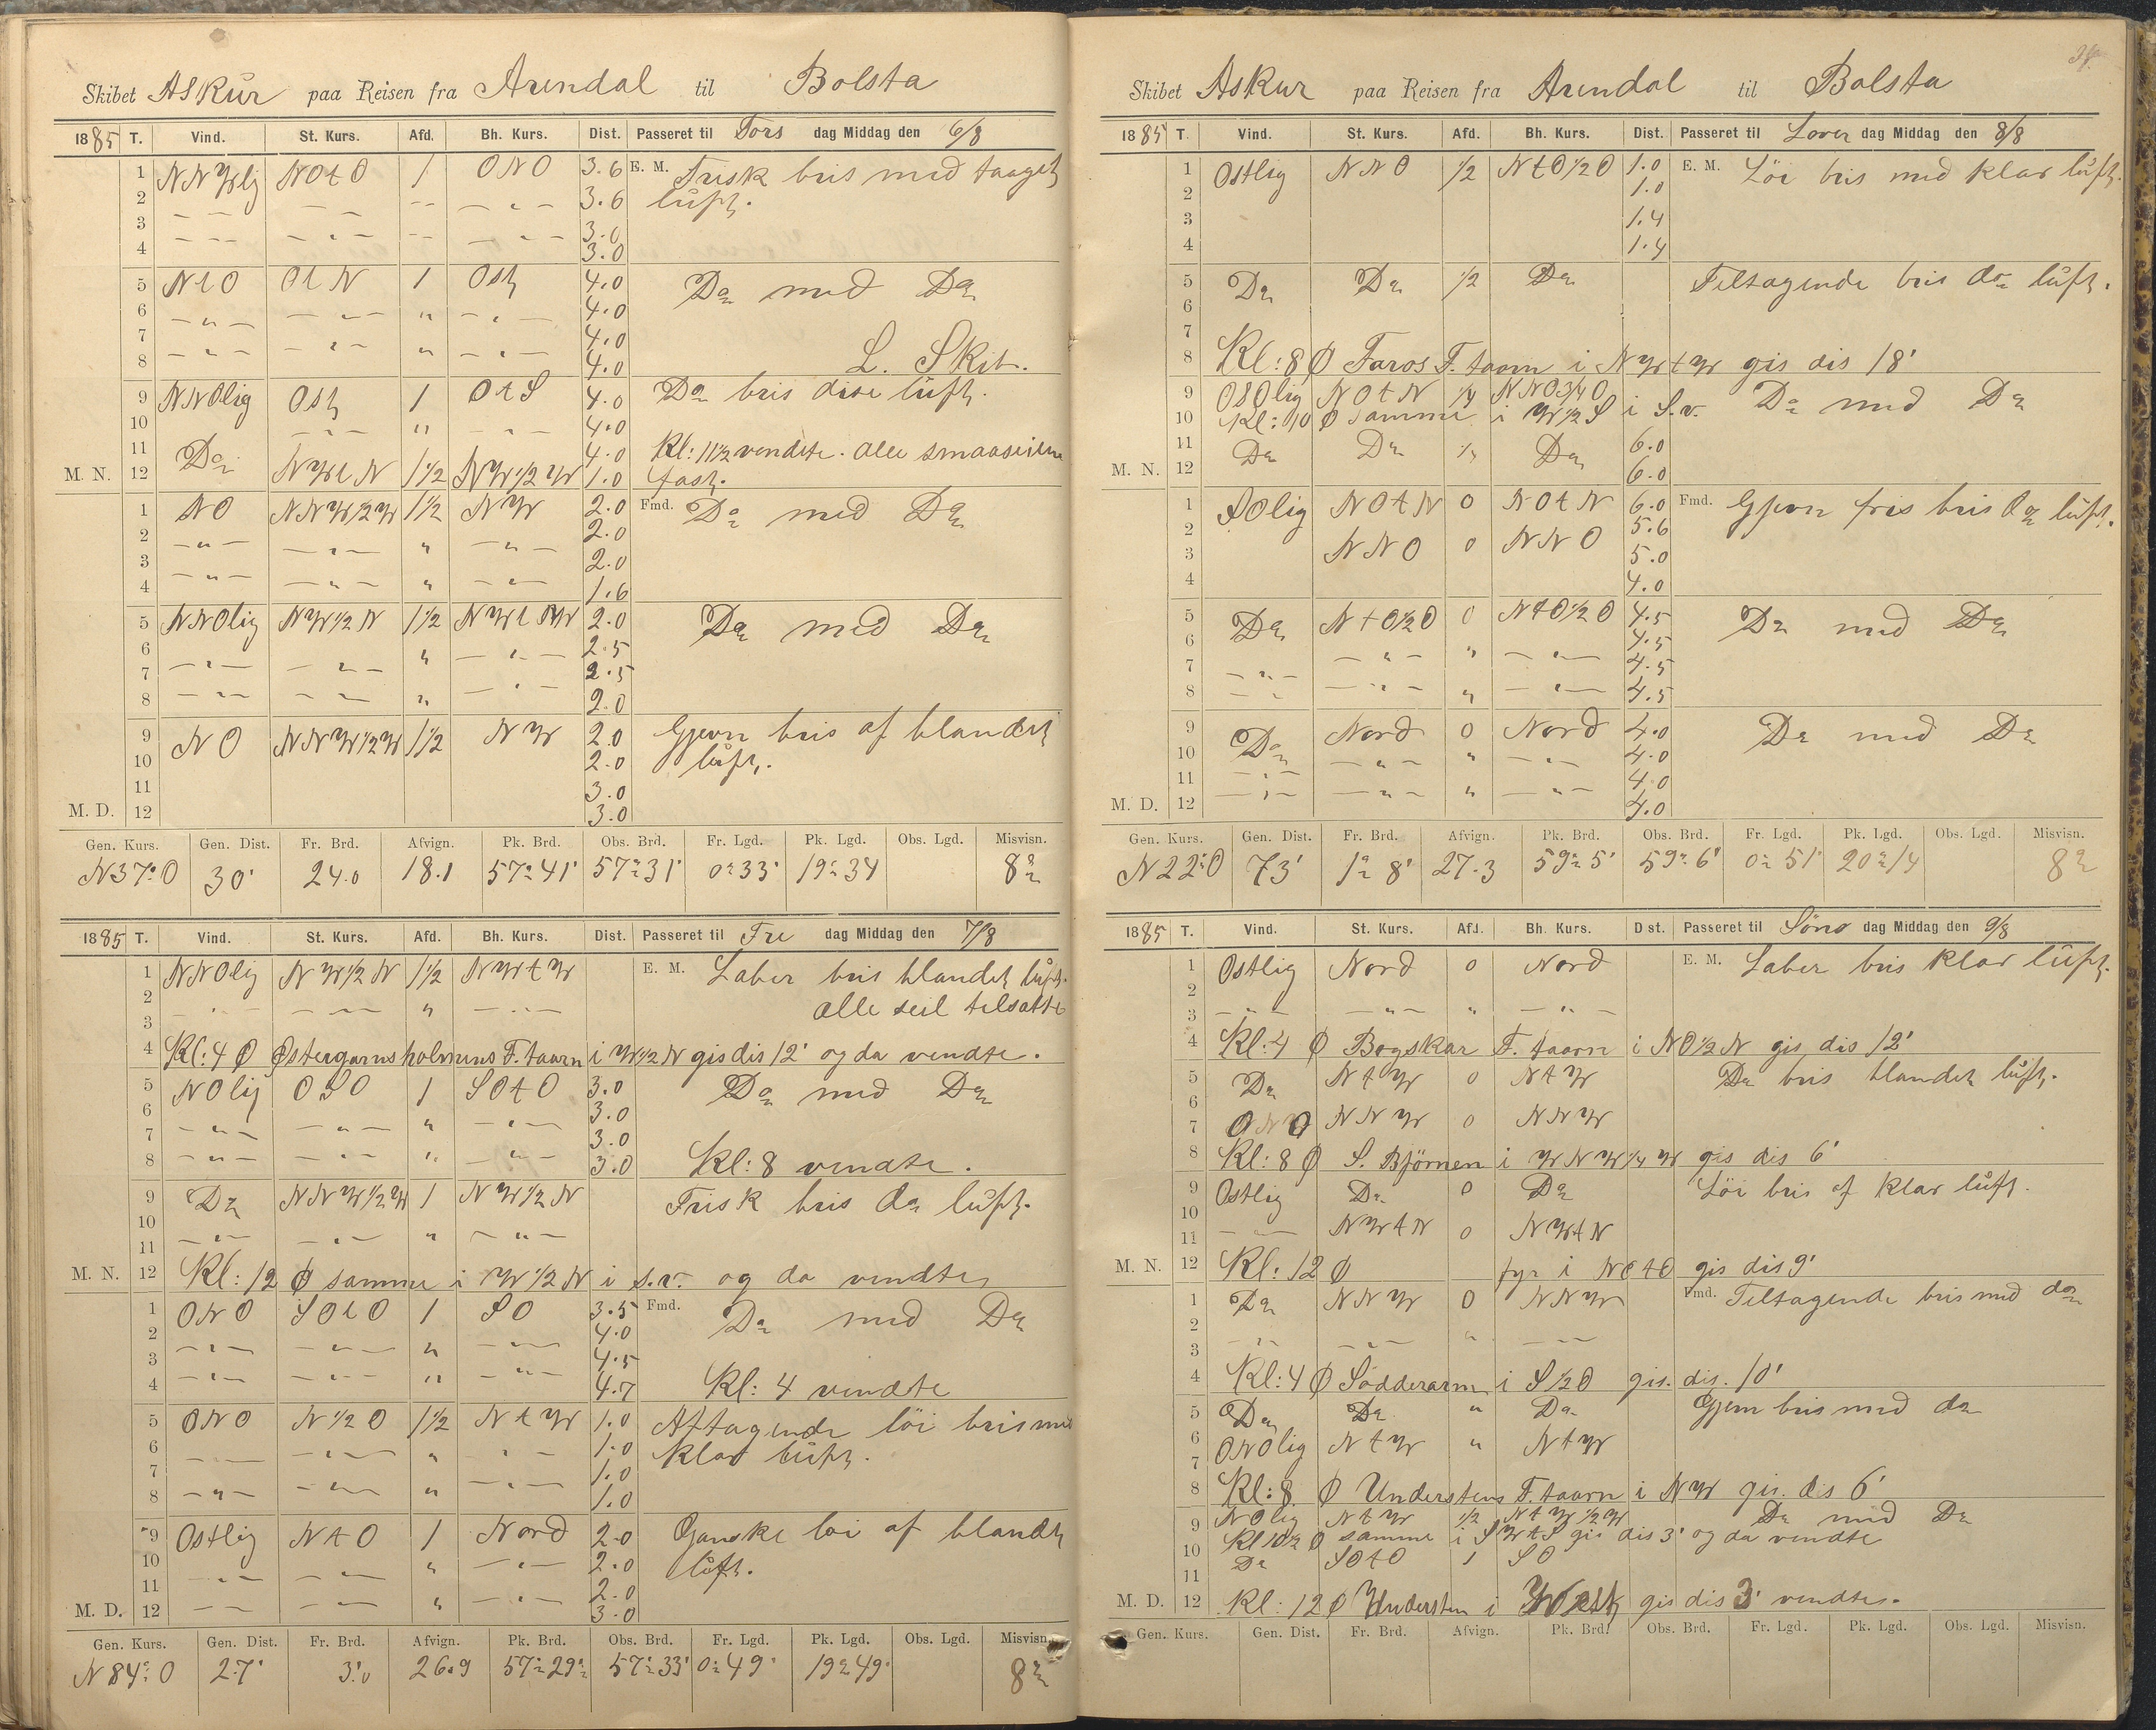 Skibet Askur paa Reisen fra Arendal til Bolsta
1885 T. Vind. St. Kurs. Afd. Bh. Kurs. Dist. Passeret til Tors dag Middag den 6/8
1 NNWlig NOtO 1 ONO 3.6 E. M. Frisk bris med taaget
2 3.6 luft.
3 3.0
4 3.0
5 NtO OtN 1 Ost 4.0 Do med Do
6 4.0
7 4.0
8 4.0 L. Skib.
9 NNOlig Ost 1 OtS 4.0 Do bris dise luft.
10 4.0
11 Do 4.0 Kl: 11½ vendte. alle smaaseilene
M. N. 12 NWtN 1½ NW½W 1.0 fast.
1 NO NNW½W 1½ NW 2.0 Fmd. Do med Do
2 2.0
3 2.0
4 1.6
5 NNOlig NW½N 1½ NWtW 2.0 Do med Do
6 2.5
7 2.5
8 2.0
9 NO NNW½W 1½ NW 2.0 Gjevn bris af blandet
10 2.0 luft.
11 3.0
M. D. 12 3.0
Gen. Kurs. Gen. Dist. Fr. Brd. Afvign. Pk. Brd. Obs. Brd. Fr. Lgd. Pk. Lgd. Obs. Lgd. Misvisn.
N37°O 30' 24.0 18.1 57°41' 57°31' 0°33' 19°34 8°
1885 T. Vind. St. Kurs. Afd. Bh. Kurs. Dist. Passeret til Fre dag Middag den 7/8
1 NNOlig NW½N 1½ NWtW E. M. Laber bris blandet luft.
2 alle seil tilsatte
3
4 Kl: 4 Ø Østergarnsholmens F. taarn i W½N gis dis 12' og da vendte.
5 NOlig OSO 1 SOtO 3.0 Do med Do
6 3.0
7 3.0
8 3.0 Kl: 8 vendte.
9 Do NNW½W 1 NW½N Frisk bris do luft.
10
11
M. N. 12 Kl: 12 Ø samme i W½N i s.v. og da vendtes
1 ONO SOtO 1 SO 3.5 Fmd. Do med Do
2 4.0
3 4.5
4 4.7 Kl: 4 vendte
5 ONO N½O 1½ NtW 1.0 Aftagende löi bris med
6 1.0 klar luft.
7 1.0
8 1.0
9 Ostlig NtO 1 Nord 2.0 Ganske löi af blandet
10 2.0 luft.
11 2.0
M. D. 12 3.0
Gen. Kurs. Gen. Dist. Fr. Brd. Afvign. Pk. Brd. Obs. Brd. Fr. Lgd. Pk. Lgd. Obs. Lgd. Misvisn.
N84°O 27' 3'.0 26.9 57°29' 57°33' 0°49' 19°49' 8°
Skibet Askur paa Reisen fra Arendal til Bolsta
1885 T. Vind. St. Kurs. Afd. Bh. Kurs. Dist. Passeret til Lover dag Middag den 8/8
1 Ostlig NNO ½ NtO½O 1.0 E. M. Löi bris med klar luft.
2 1.0
3 1.4
4 1.4
5 Do Do ½ Do Tiltagende bris do luft.
6
7
8 Kl: 8 Ø Faros F. taarn i NWtW gis dis 18'
9 OSOlig NOtN ¼ NNO¾O Do med Do
10 Kl: 10 Ø samme i W½S i S.v.
11 Do Do ¼ Do 6.0
M. N. 12 6.0
1 SOlig NOtN 0 NOtN 6.0 Fmd. Gjevn fris bris do luft.
2 5.6
3 NNO 0 NNO 5.0
4 4.0
5 Do NtO½O 0 NtO½O 4.5 Do med Do
6 4.5
7 4.5
8 4.5
9 Do Nord 0 Nord 4.0 Do med Do
10 4.0
11 4.0
M. D. 12 4.0
Gen. Kurs. Gen. Dist. Fr. Brd. Afvign. Pk. Brd. Obs. Brd. Fr. Lgd. Pk. Lgd. Obs. Lgd. Misvisn.
N22°O 73' 1°8' 27.3 59°5' 59°6' 0°51' 20°14 8°
1885 T. Vind. St. Kurs. Afd. Bh. Kurs. Dist. Passeret til Söno dag Middag den 9/8
1 Ostlig Nord 0 Nord E. M. Laber bris klar luft.
2
3
4 Kl: 4 Ø Bogskar F. taarn i NO½N gis dis 12'
5 Do NtW 0 NtW Do bris blandet luft.
6
7 ONO NNW 0 NNW
8 Kl: 8 Ø S. Björnen i WNW¼W gis dis 6'
9 Ostlig Do 0 Do Löi bris af klar luft.
10
11 NWtN 0 NWtN
M. N. 12 Kl: 12 Ø fyr i NOtO gis dis 9'
1 Do NNW 0 NNW Fmd. Tiltagende bris med do
2
3
4 Kl: 4 Ø Södderarm i S½O gis. dis. 10'
5 Do Do Do Gjevn bris med do
6 ONOlig NtW NtW
7
8 Kl: 8 Ø Understens F. taarn i NW gis. dis 6'
9 NOlig NtW ½ NtW½W Do med Do
10 Kl 10½ Ø samme i SWtS gis dis 3' og da vendte
11 Do SOtO 1 SO
M. D. 12 Kl: 12 Ø Understen i West gis dis 3' vendtes.
Gen. Kurs. Gen. Dist. Fr. Brd. Afvign. Pk. Brd. Obs. Brd. Fr. Lgd. Pk. Lgd. Obs. Lgd. Misvisn.